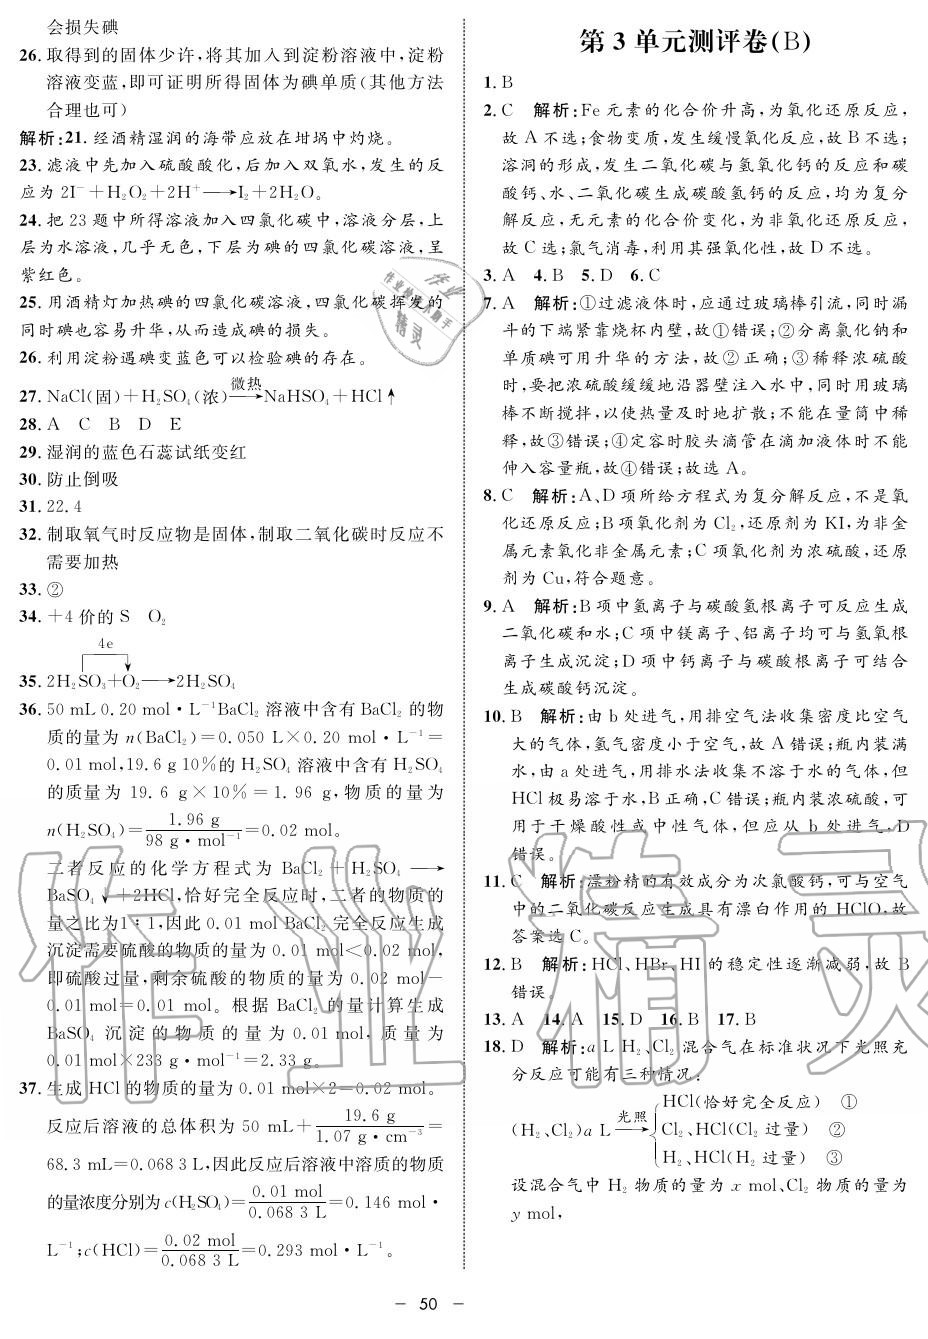 会损失碘
26. 取得到的固体少许,将其加入到淀粉溶液中,淀粉
溶液变蓝,即可证明所得固体为碘单质(其他方法
合理也可)
解析:21. 经酒精湿润的海带应放在坩埚中灼烧。
23. 滤液中先加入硫酸酸化,后加入双氧水,发生的反
应为 2I⁻+H₂O₂+2H⁺⟶I₂+2H₂O。
24. 把 23 题中所得溶液加入四氯化碳中,溶液分层,上
层为水溶液,几乎无色,下层为碘的四氯化碳溶液,呈
紫红色。
25. 用酒精灯加热碘的四氯化碳溶液,四氯化碳挥发的
同时碘也容易升华,从而造成碘的损失。
26. 利用淀粉遇碘变蓝色可以检验碘的存在。
27. NaCl(固)+H₂SO₄(浓)⟶(微热)NaHSO₄+HCl↑
28. A C B D E
29. 湿润的蓝色石蕊试纸变红
30. 防止倒吸
31. 22.4
32. 制取氧气时反应物是固体,制取二氧化碳时反应不
需要加热
33. ②
34. +4 价的 S O₂
4e
35. 2H₂SO₃+O₂⟶2H₂SO₄
36. 50 mL 0.20 mol·L⁻¹BaCl₂ 溶液中含有 BaCl₂ 的物
质的量为 n(BaCl₂)=0.050 L×0.20 mol·L⁻¹=
0.01 mol,19.6 g 10%的 H₂SO₄ 溶液中含有 H₂SO₄
的质量为 19.6 g×10%=1.96 g,物质的量为
n(H₂SO₄)=1.96 g/98 g·mol⁻¹=0.02 mol。
二者反应的化学方程式为 BaCl₂+H₂SO₄⟶
BaSO₄↓+2HCl,恰好完全反应时,二者的物质的
量之比为1∶1,因此 0.01 mol BaCl₂ 完全反应生成
沉淀需要硫酸的物质的量为 0.01 mol<0.02 mol,
即硫酸过量,剩余硫酸的物质的量为 0.02 mol−
0.01 mol=0.01 mol。根据 BaCl₂ 的量计算生成
BaSO₄ 沉淀的物质的量为 0.01 mol,质量为
0.01 mol×233 g·mol⁻¹=2.33 g。
37. 生成 HCl 的物质的量为 0.01 mol×2=0.02 mol。
反应后溶液的总体积为 50 mL+19.6 g/1.07 g·cm⁻³=
68.3 mL=0.068 3 L,因此反应后溶液中溶质的物质
的量浓度分别为 c(H₂SO₄)=0.01 mol/0.068 3 L=0.146 mol·
L⁻¹;c(HCl)=0.02 mol/0.068 3 L=0.293 mol·L⁻¹。
第 3 单元测评卷(B)
1. B
2. C 解析:Fe 元素的化合价升高,为氧化还原反应,
故 A 不选;食物变质,发生缓慢氧化反应,故 B 不选;
溶洞的形成,发生二氧化碳与氢氧化钙的反应和碳
酸钙、水、二氧化碳生成碳酸氢钙的反应,均为复分
解反应,无元素的化合价变化,为非氧化还原反应,
故 C 选;氯气消毒,利用其强氧化性,故 D 不选。
3. A 4. B 5. D 6. C
7. A 解析:①过滤液体时,应通过玻璃棒引流,同时漏
斗的下端紧靠烧杯内壁,故①错误;②分离氯化钠和
单质碘可用升华的方法,故②正确;③稀释浓硫酸
时,要把浓硫酸缓缓地沿器壁注入水中,同时用玻璃
棒不断搅拌,以使热量及时地扩散;不能在量筒中稀
释,故③错误;④定容时胶头滴管在滴加液体时不能
伸入容量瓶,故④错误;故选 A。
8. C 解析:A、D 项所给方程式为复分解反应,不是氧
化还原反应;B 项氧化剂为 Cl₂,还原剂为 KI,为非金
属元素氧化非金属元素;C 项氧化剂为浓硫酸,还原
剂为 Cu,符合题意。
9. A 解析:B 项中氢离子与碳酸氢根离子可反应生成
二氧化碳和水;C 项中镁离子、铝离子均可与氢氧根
离子生成沉淀;D 项中钙离子与碳酸根离子可结合
生成碳酸钙沉淀。
10. B 解析:由 b 处进气,用排空气法收集密度比空气
大的气体,氢气密度小于空气,故 A 错误;瓶内装满
水,由 a 处进气,用排水法收集不溶于水的气体,但
HCl 极易溶于水,B 正确,C 错误;瓶内装浓硫酸,可
用于干燥酸性或中性气体,但应从 b 处进气,D
错误。
11. C 解析:漂粉精的有效成分为次氯酸钙,可与空气
中的二氧化碳反应生成具有漂白作用的 HClO,故
答案选 C。
12. B 解析:HCl、HBr、HI 的稳定性逐渐减弱,故 B
错误。
13. A 14. A 15. D 16. B 17. B
18. D 解析:a L H₂、Cl₂ 混合气在标准状况下光照充
分反应可能有三种情况:
HCl(恰好完全反应) ①
(H₂、Cl₂)a L⟶(光照){Cl₂、HCl(Cl₂ 过量) ②
H₂、HCl(H₂ 过量) ③
设混合气中 H₂ 物质的量为 x mol、Cl₂ 物质的量为
y mol,
— 50 —
作业精灵
作业
精灵